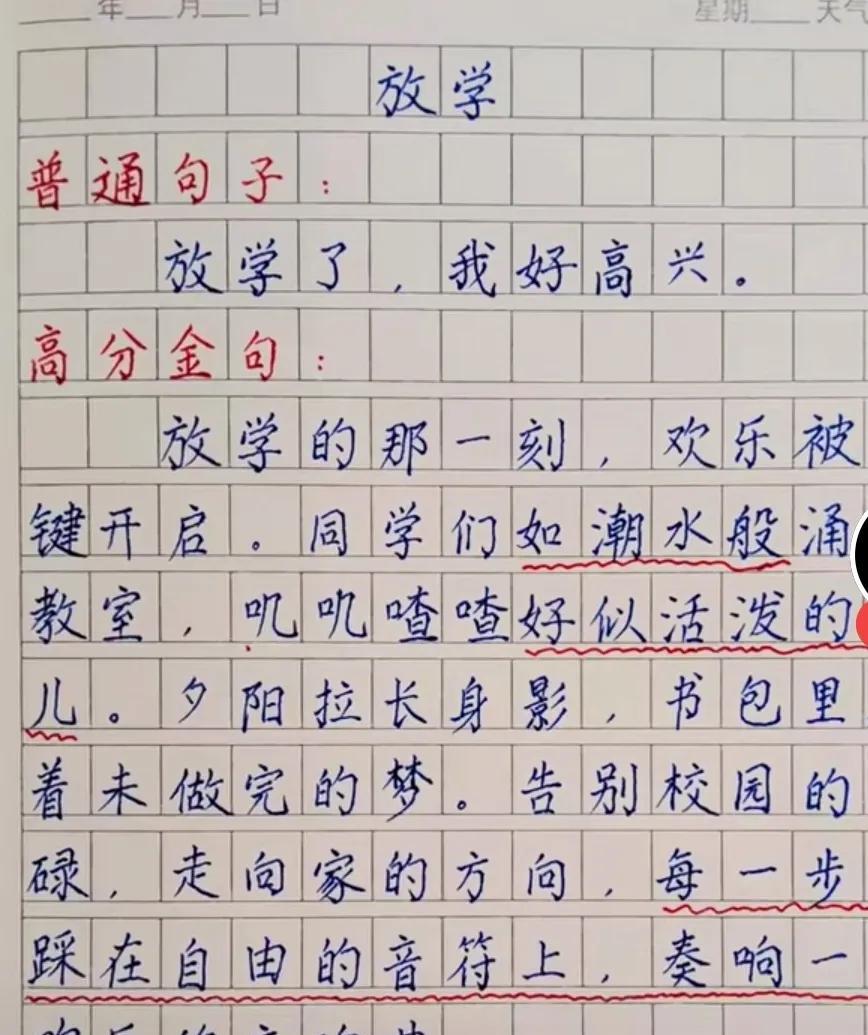 年 月 日 星期 天气
放学
普通句子：
放学了，我好高兴。
高分金句：
放学的那一刻，欢乐被
键开启。同学们如潮水般涌
教室，叽叽喳喳好似活泼的
儿。夕阳拉长身影，书包里
着未做完的梦。告别校园的
碌，走向家的方向，每一步
踩在自由的音符上，奏响一